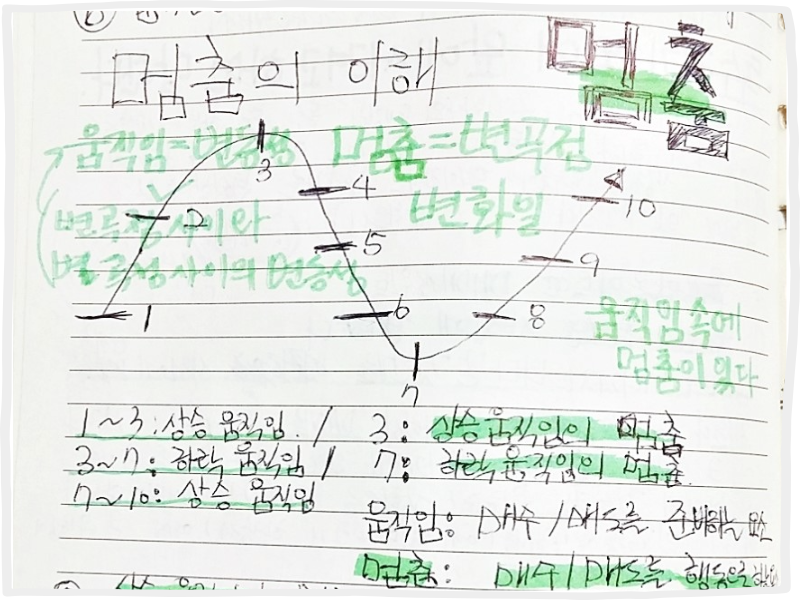 멈춤의 이해
멈춤
움직임 = 변동성
멈춤 = 변곡점
변화일
변곡점 사이와
변곡점 사이의 변동성
1
2
3
4
5
6
7
8
9
10
움직임 속에
멈춤이 있다
1~3 : 상승 움직임 / 3 : 상승 움직임의 멈춤
3~7 : 하락 움직임 / 7 : 하락 움직임의 멈춤
7~10 : 상승 움직임
움직임 : 매수 / 매도를 준비하는 요소
멈춤 : 매수 / 매도를 행동으로